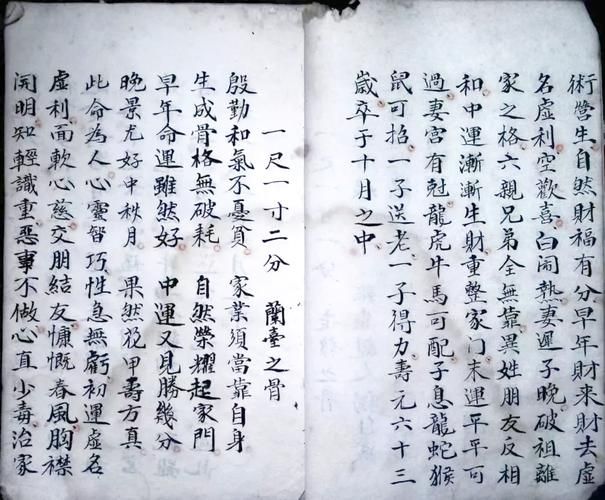 術營生自然財福有分早年財來財去虛
名虛利空歡喜白鬧熱妻遲子晚破祖離
家之格六親兄弟全無靠異姓朋友反相
和中運漸漸生財重整家門末運平平可
過妻宮有尅龍虎牛馬可配子息龍蛇猴
鼠可招一子送老一子得力壽元六十三
歲卒于十月之中
一尺一寸二分 蘭臺之骨
殷勤和氣不憂貧 家業須當靠自身
生成骨格無破耗 自然榮耀起家門
早年命運雖然好 中運又見勝幾分
晚景尤好中秋月 果然花甲壽方真
此命為人心靈智巧性急無虧初運虛名
虛利面軟心慈交朋結友慷慨春風胸襟
開明知輕識重惡事不做心直少毒治家